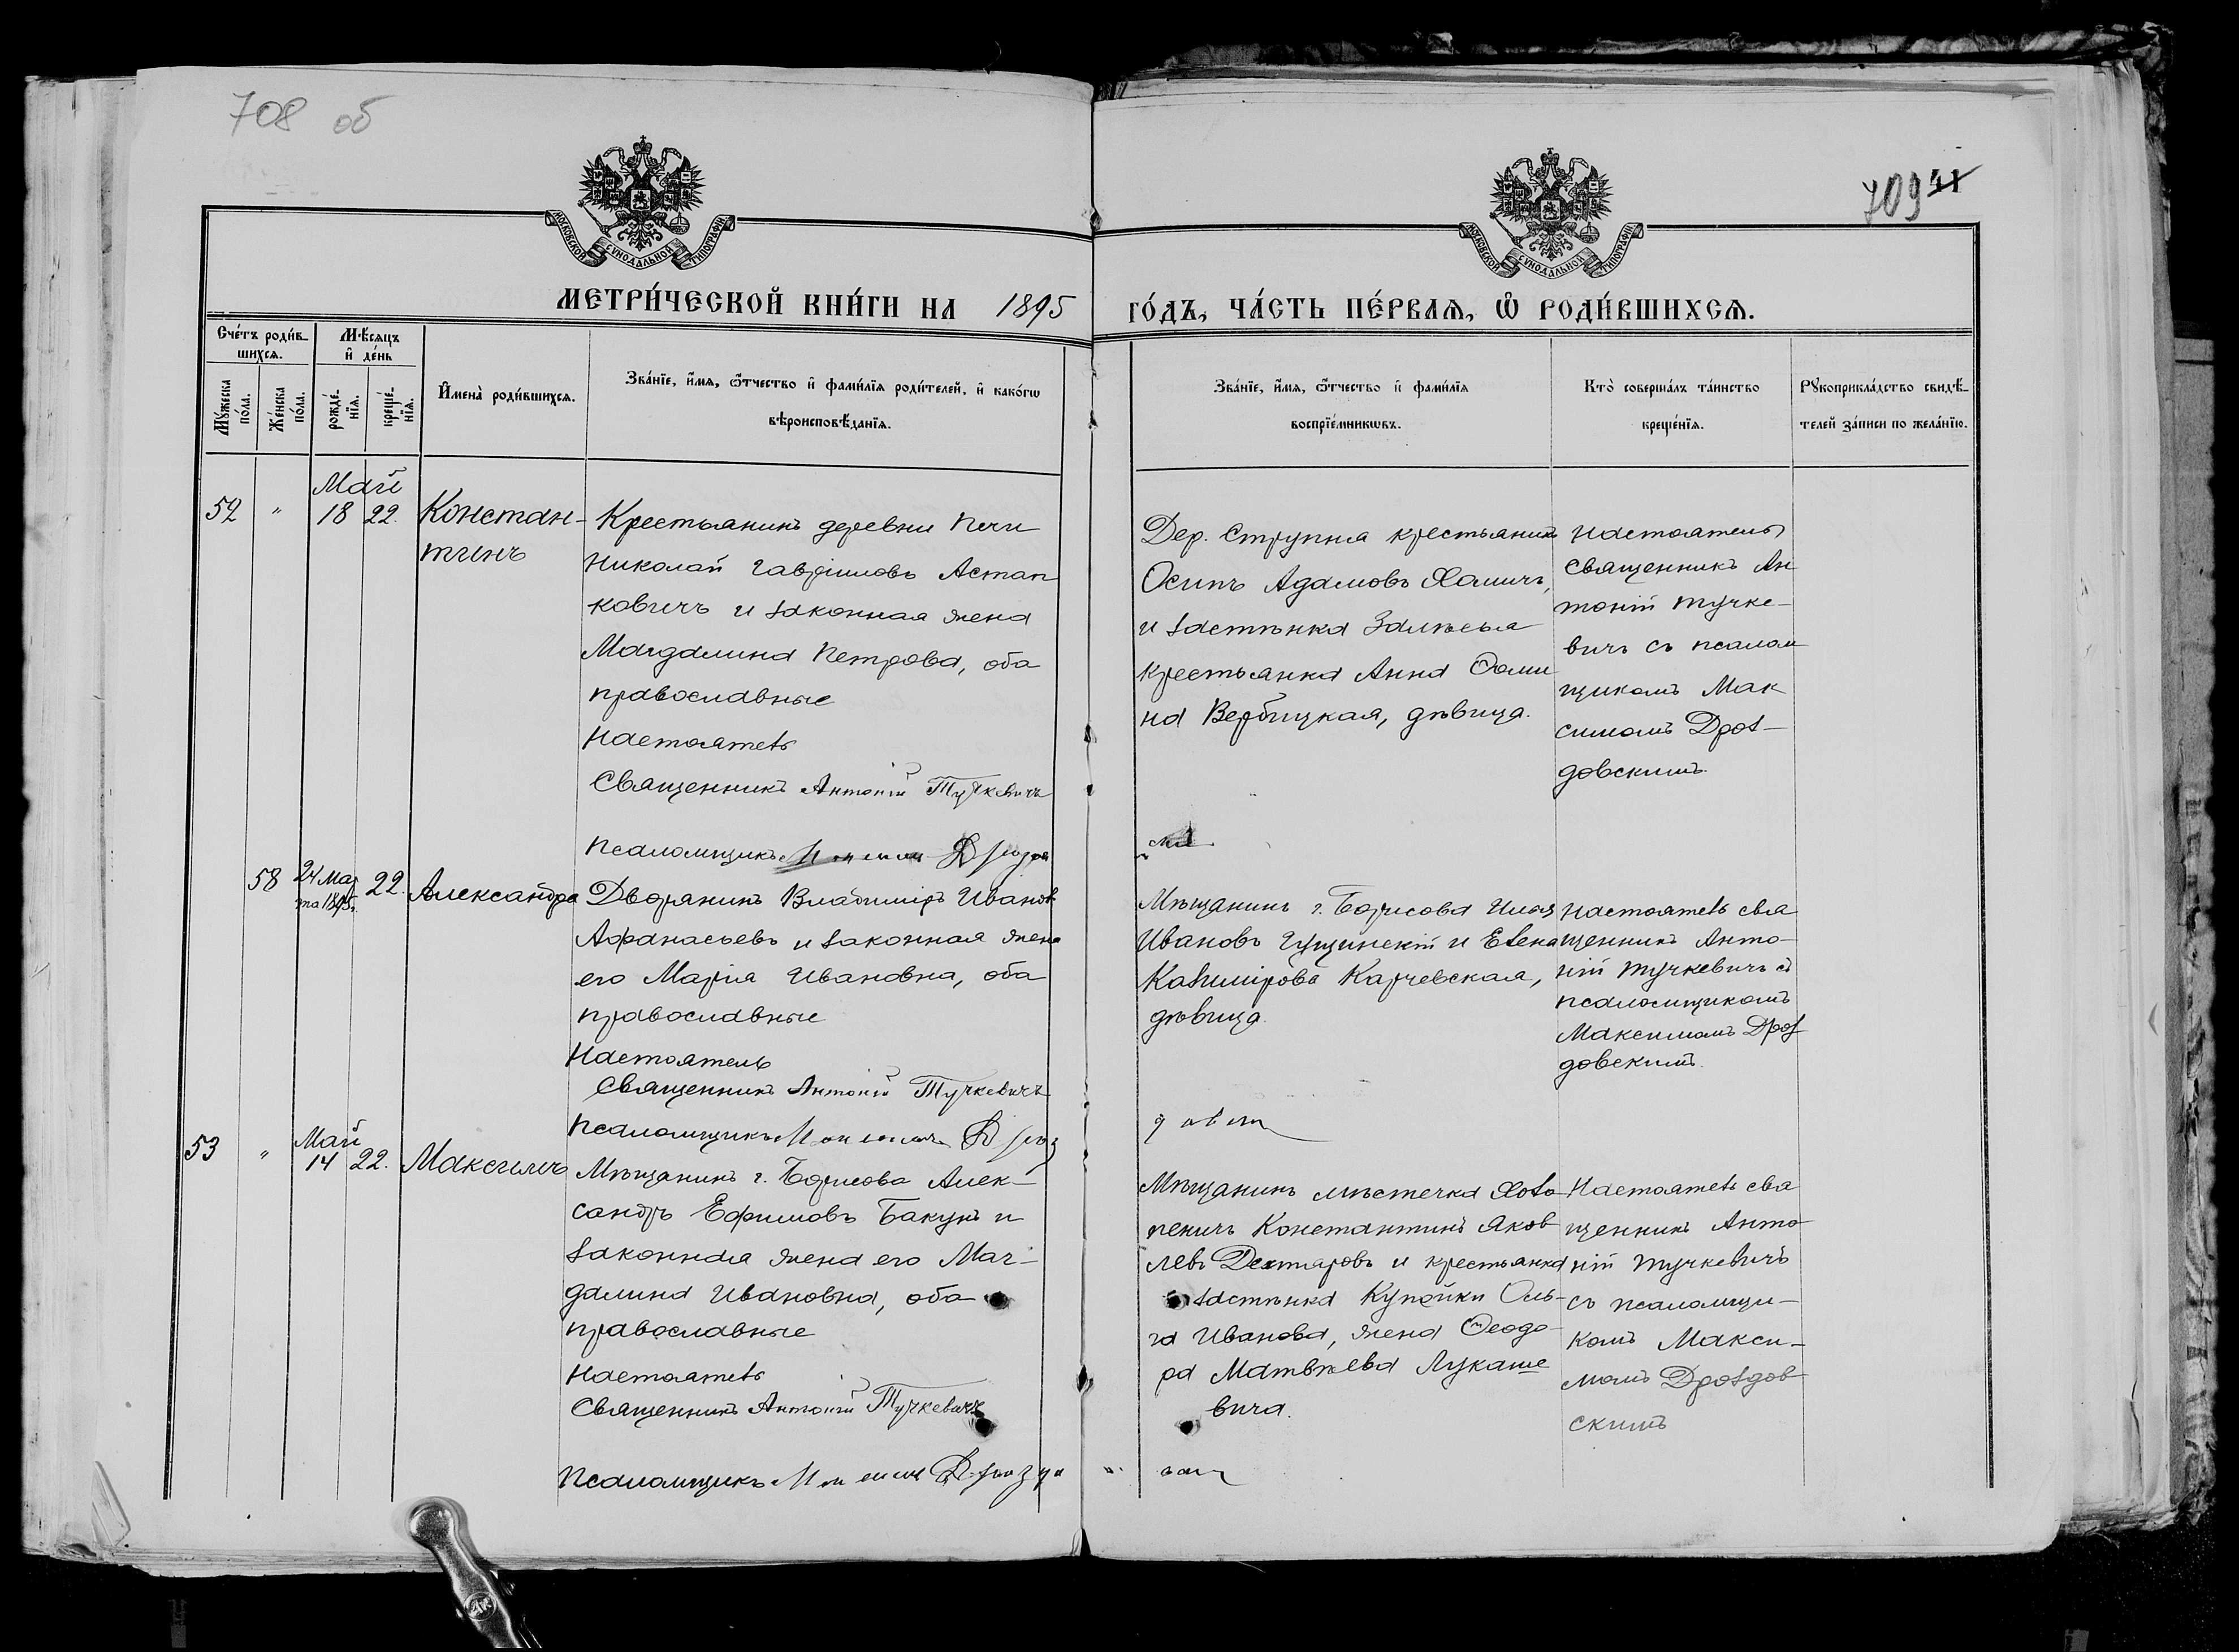 708 об
709 41
МОСКОВСКОЙ СѴНОДАЛЬНОЙ ТИПОГРАФІИ
МОСКОВСКОЙ СѴНОДАЛЬНОЙ ТИПОГРАФІИ
МЕТРИ́ЧЕСКОЙ КНИ́ГИ НА 1895
ГО́ДЪ, ЧА́СТЬ ПЕ́РВАѦ, Ѽ РОДИ́ВШИХСѦ.
Сче́тъ роди́в-
шихсѧ.
Мѣ́сѧцъ
и҆ де́нь
Мꙋ́жеска
по́ла.
Же́нска
по́ла.
рожде́-
нїѧ.
креще́-
нїѧ.
И҆мена̀ роди́вшихсѧ.
Зва́нїе, и҆́мѧ, ѻ҆́тчество и҆ фами́лїѧ роди́телей, и҆ како́гѡ
вѣроисповѣ́данїѧ.
Зва́нїе, и҆́мѧ, ѻ҆́тчество и҆ фами́лїѧ
воспрїе́мникѡвъ.
Кто̀ соверша́лъ та́инство
креще́нїѧ.
Рꙋкоприкла́дство свидѣ́-
телей за́писи по жела́нїю.
Май
52 " 18 22. Констан-
тинъ
Крестьянинъ деревни Печи
Николай Гавріиловъ Астап
ковичъ и законная жена
Магдалина Петрова, оба
православные
Настоятель
Священникъ Антоній Тучкевичъ
Псаломщикъ
Дер. Струпня крестьянинъ
Осипъ Адамовъ Хамичъ,
и застѣнка Залѣсья
крестьянка Анна Ѳоми
на Вербицкая, дѣвица.
Настоятель
Священникъ Ан
тоній Тучке-
вичъ съ псалом
щикомъ Мак
симомъ Дроз-
довскимъ.
58 24 Мар
та 1895г. 22. Александра
Дворянинъ Владиміръ Иванов
Афанасьевъ и законная жена
его Марія Ивановна, оба
православные
Настоятель
Священникъ Антоній Тучкевичъ
Псаломщикъ
Мѣщанинъ г. Борисова
Ивановъ и Елена
Казимірова Карчевская,
дѣвица.
Настоятель свя
щенникъ Анто-
ній Тучкевичъ съ
псаломщикомъ
Максимомъ Дроз
довскимъ.
Май
53 " 14 22. Максимъ
Мѣщанинъ г. Борисова Алек-
сандръ Ефимовъ Бакунъ и
законная жена его Маг-
далина Ивановна, оба
православные
Настоятель
Священникъ Антоній Тучкевичъ
Псаломщикъ
Мѣщанинъ мѣстечка Холо
пеничъ Константинъ Яков
левъ Дехтяровъ и крестьянка
застѣнка Купойки Оль-
га Иванова, жена Ѳеодо-
ра Матвѣева Лукаше
вича.
Настоятель свя
щенникъ Анто
ній Тучкевичъ
съ псаломщи-
комъ Макси-
момъ Дроздов
скимъ